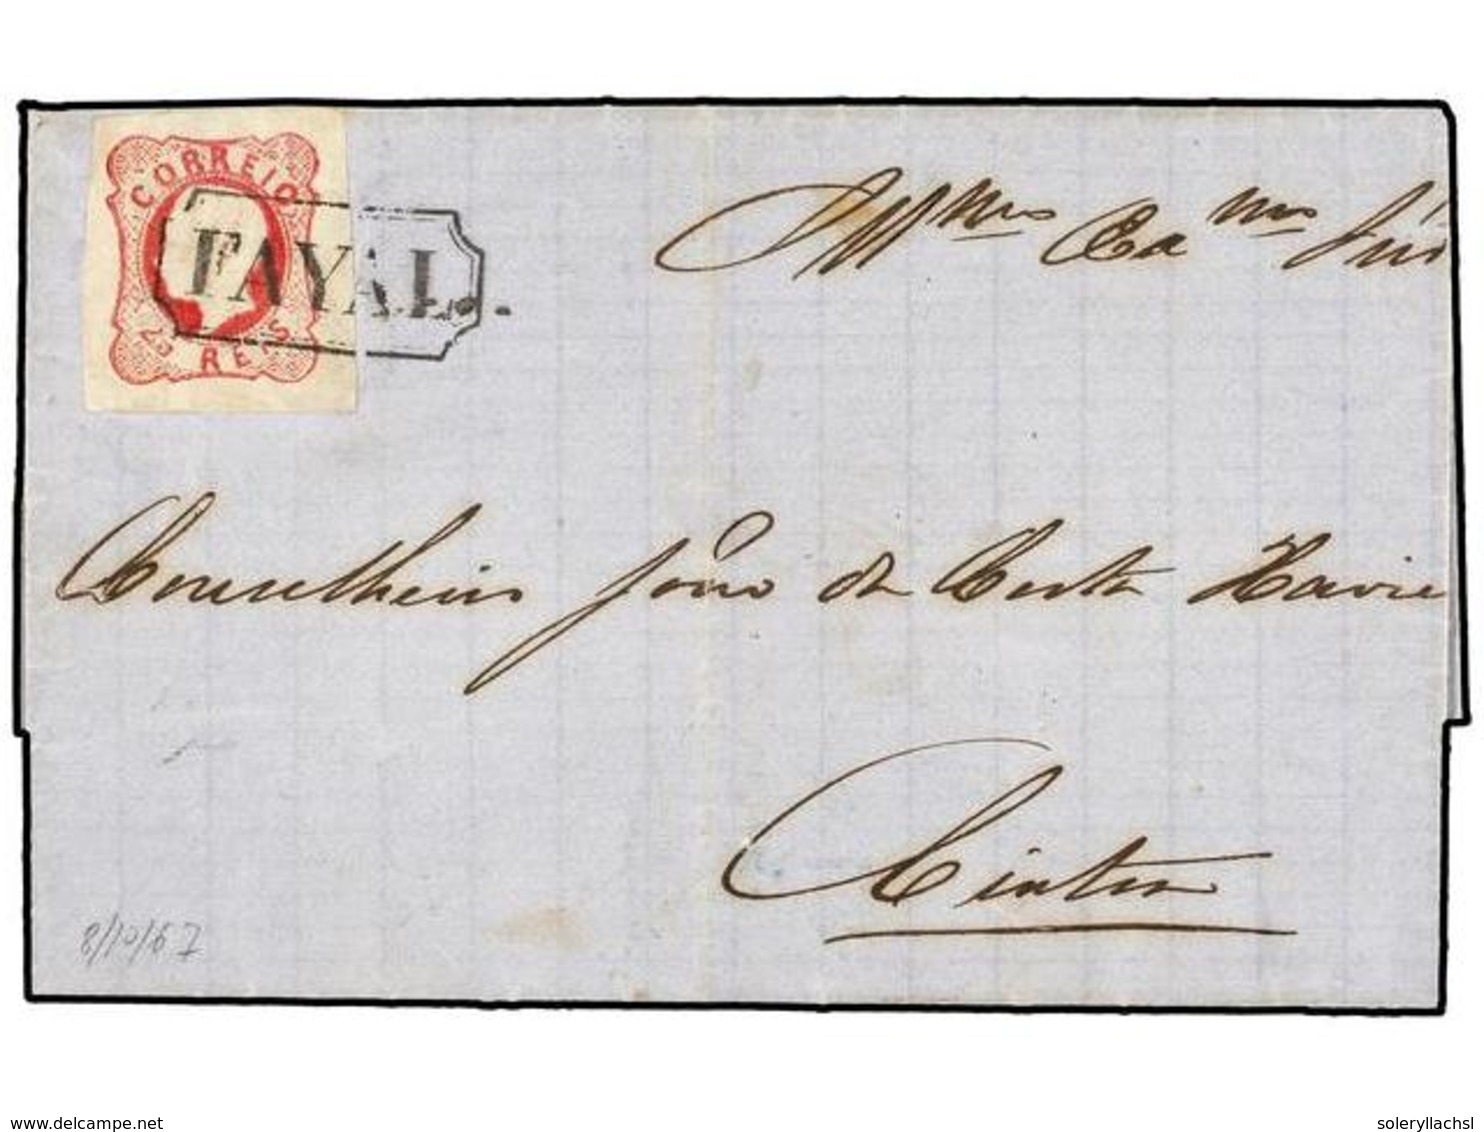 CORREIO
25 REIS
FAYAL.
Conselheiro João da Costa Xavie
Cintra
8/10/67
www.delcampe.net
soleryllachsl